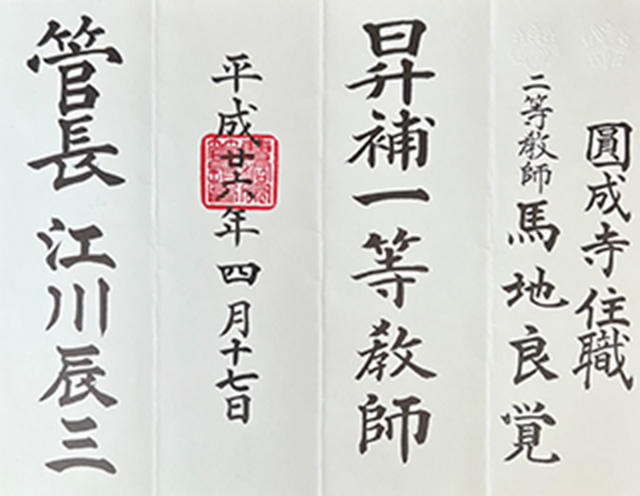 圓成寺住職
二等教師 馬地良覚
昇補一等教師
平成廿六年四月十七日
管長 江川辰三